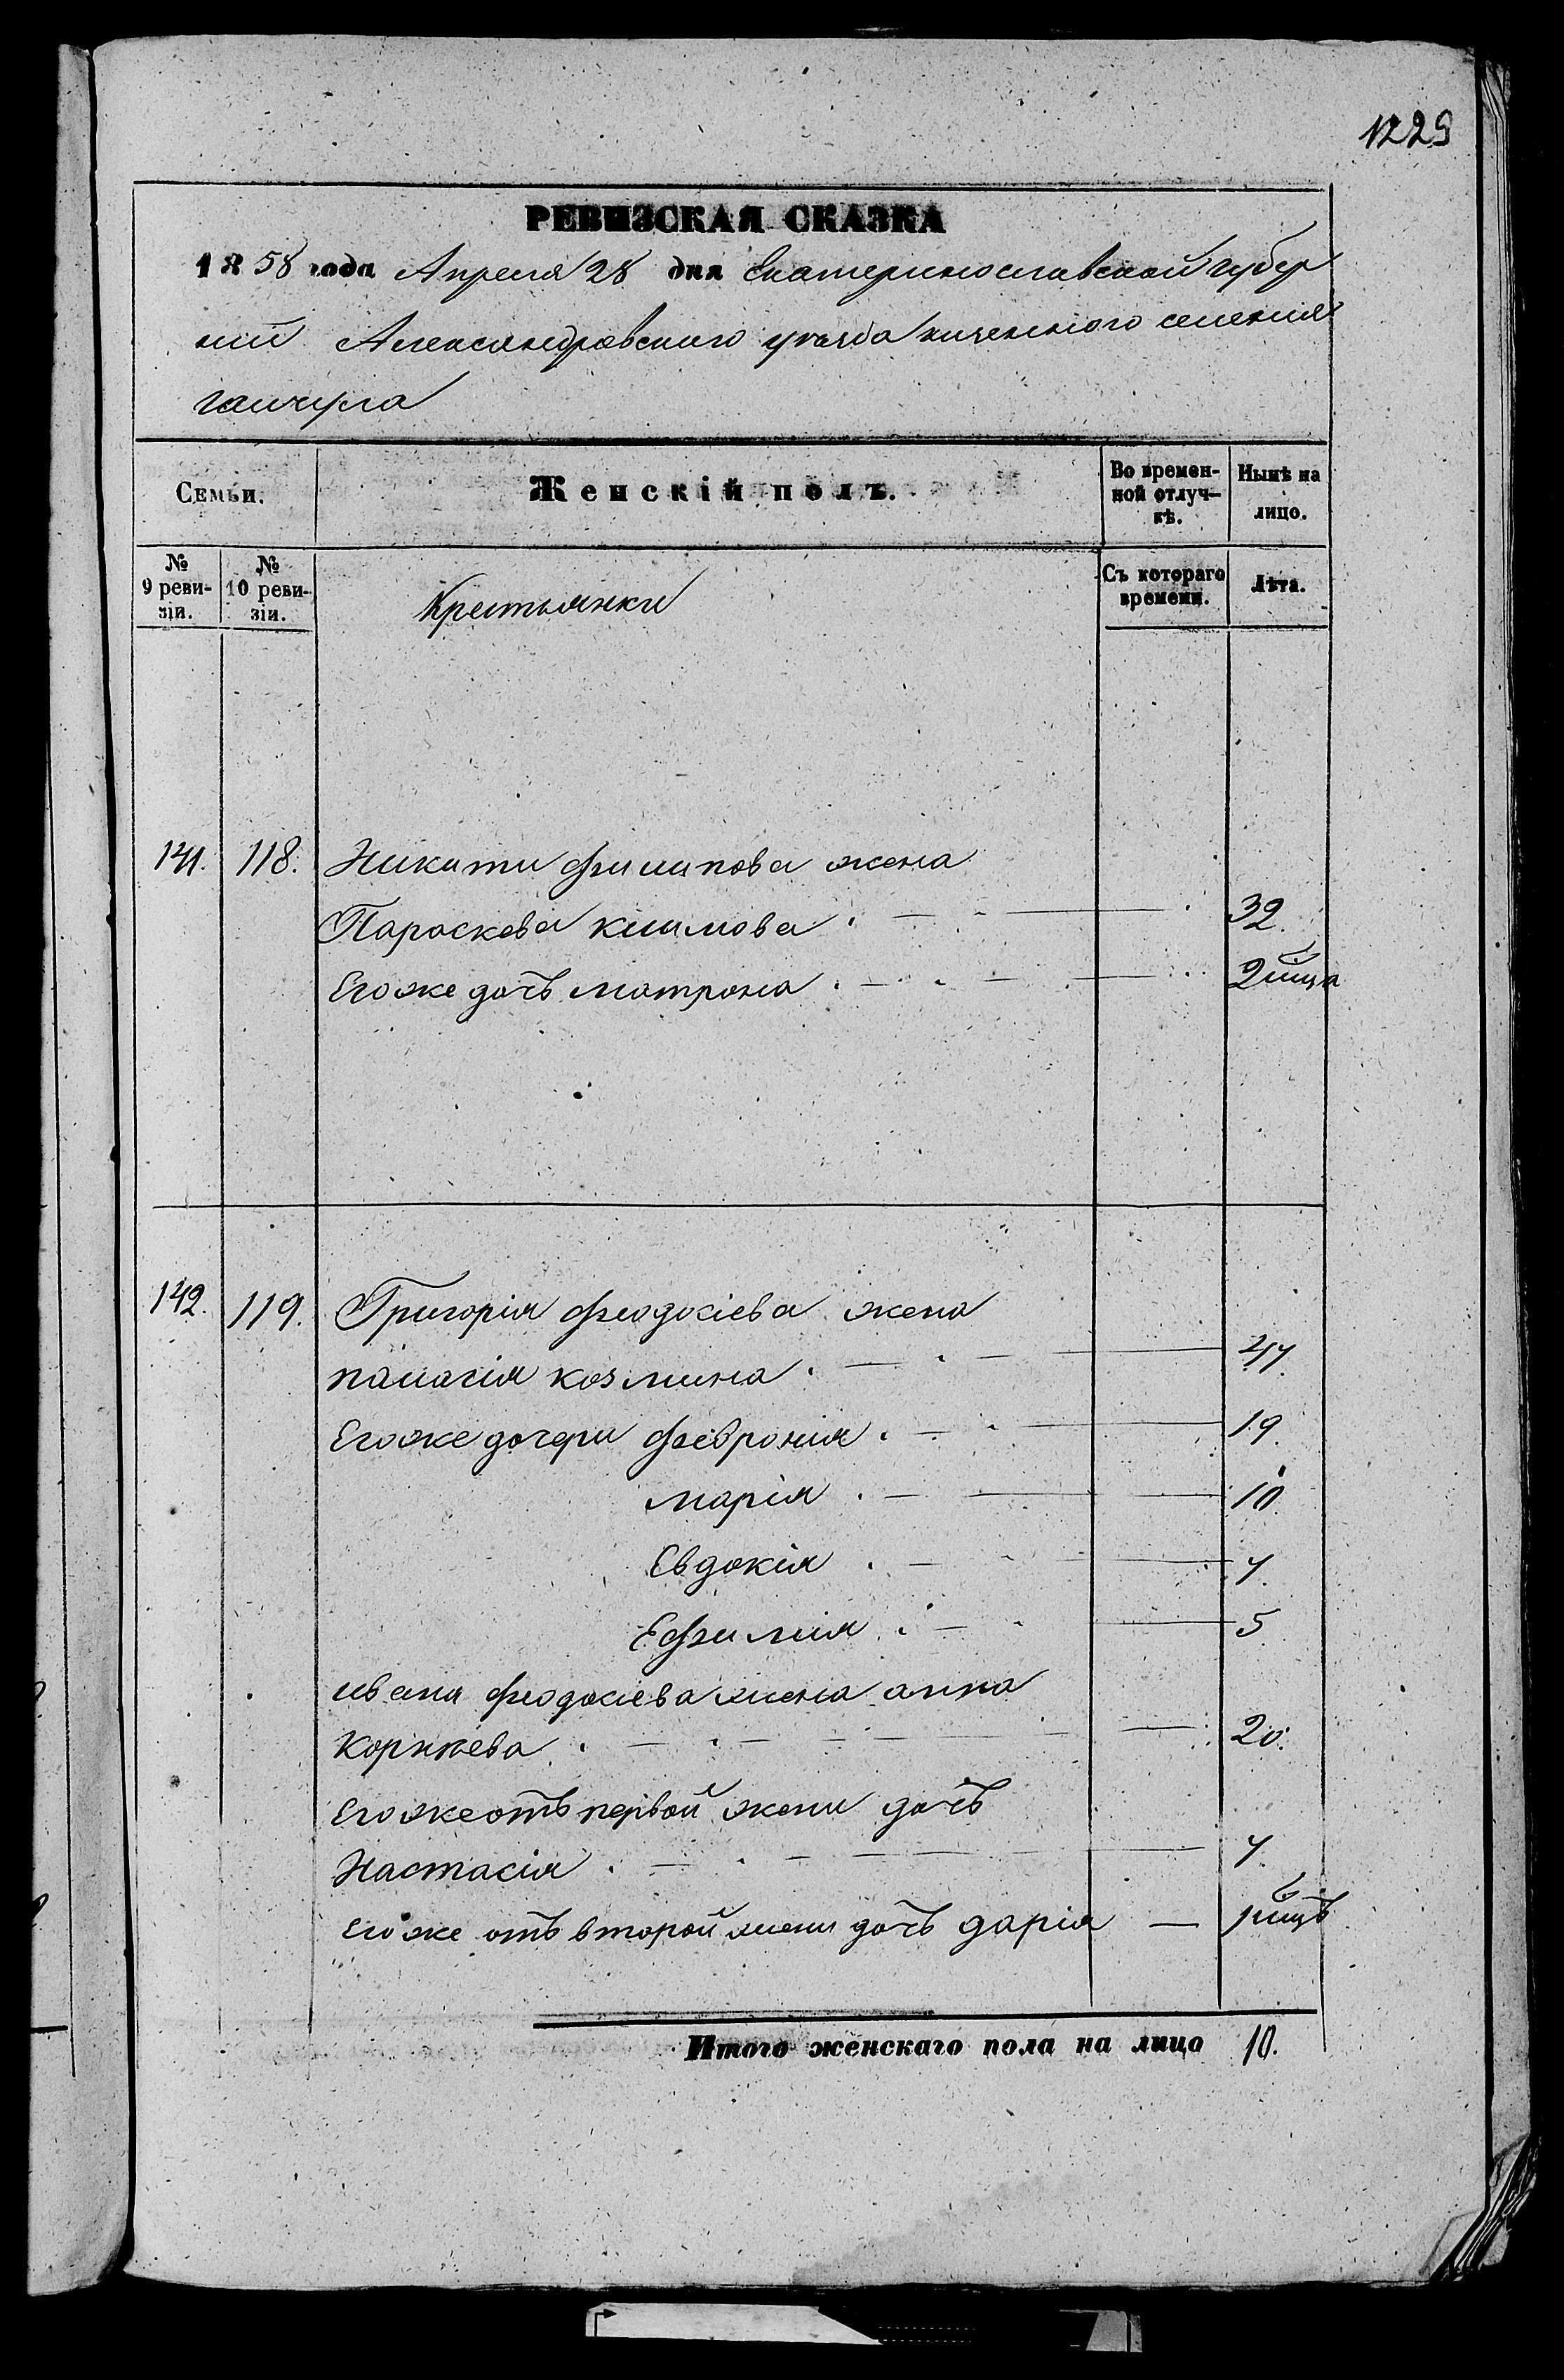 1229
РЕВИЗСКАЯ СКАЗКА
1858 года Апреля 28 дня Екатеринославской губер
нии Александровского уезда казенного селения
гайчула
Семьи.
Женскій полъ.
Во времен-
ной отлуч-
кѣ.
Нынѣ на
лицо.
№
9 реви-
зіи.
№
10 реви-
зіи.
Крестьянки
Съ котораго
времени.
Лѣта.
141. 118. Никити филипова жена
Параскева климова 32.
Его же дочъ матрона 2 мца
142. 119. Григорія феодосіева жена
палагія козмина 47.
Его же дочери февронія 19.
марія 10.
Евдокія 7.
Ефимія 5
ивана феодосиева жена анна
Корнѣева 20.
Его же отъ первой жени дочъ
Настасія 7.
Его же отъ второй жени дочъ дарія 1 мцъ
Итого женскаго пола на лицо 10.